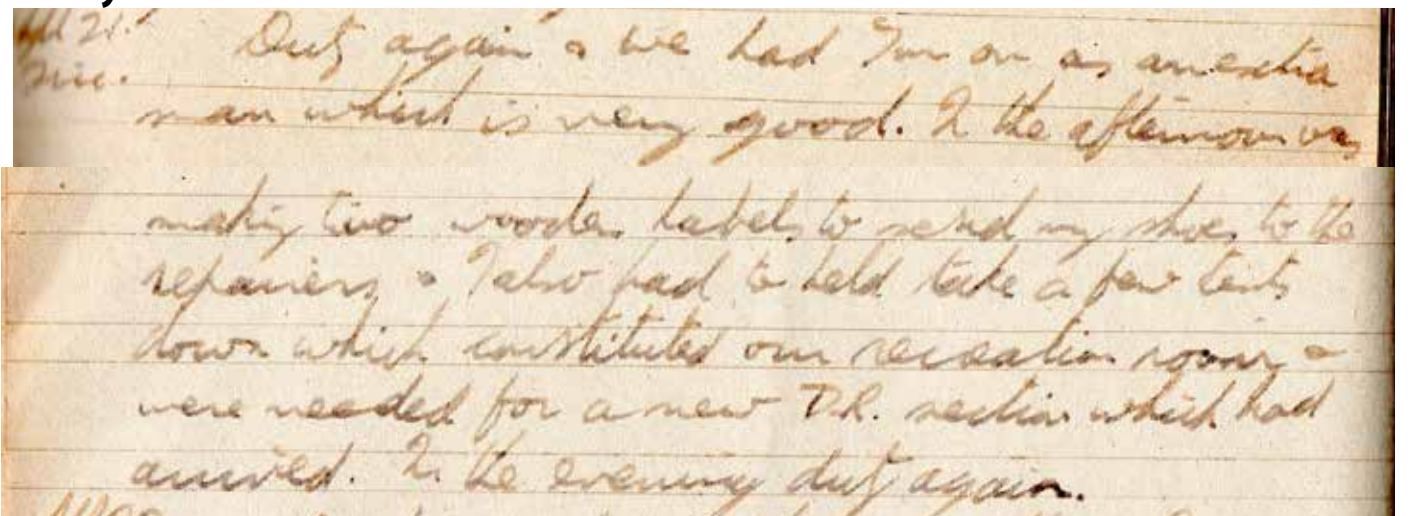 21. Duty again & we had Jim on as an extra
man which is very good. In the afternoon was
making two wooden labels to send my shoes to the
repairers & I also had to held take a few tents
down which constituted our recreation room &
were needed for a new D.R. section which had
arrived. In the evening duty again.